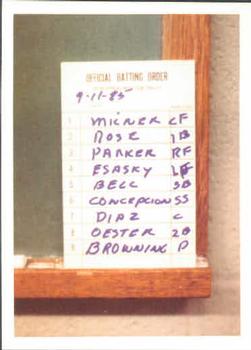 OFFICIAL BATTING ORDER
9-11-85
1 MILNER CF
2 ROSE 1B
3 PARKER RF
4 ESASKY LF
5 BELL 3B
6 CONCEPCION SS
7 DIAZ C
8 OESTER 2B
9 BROWNING P